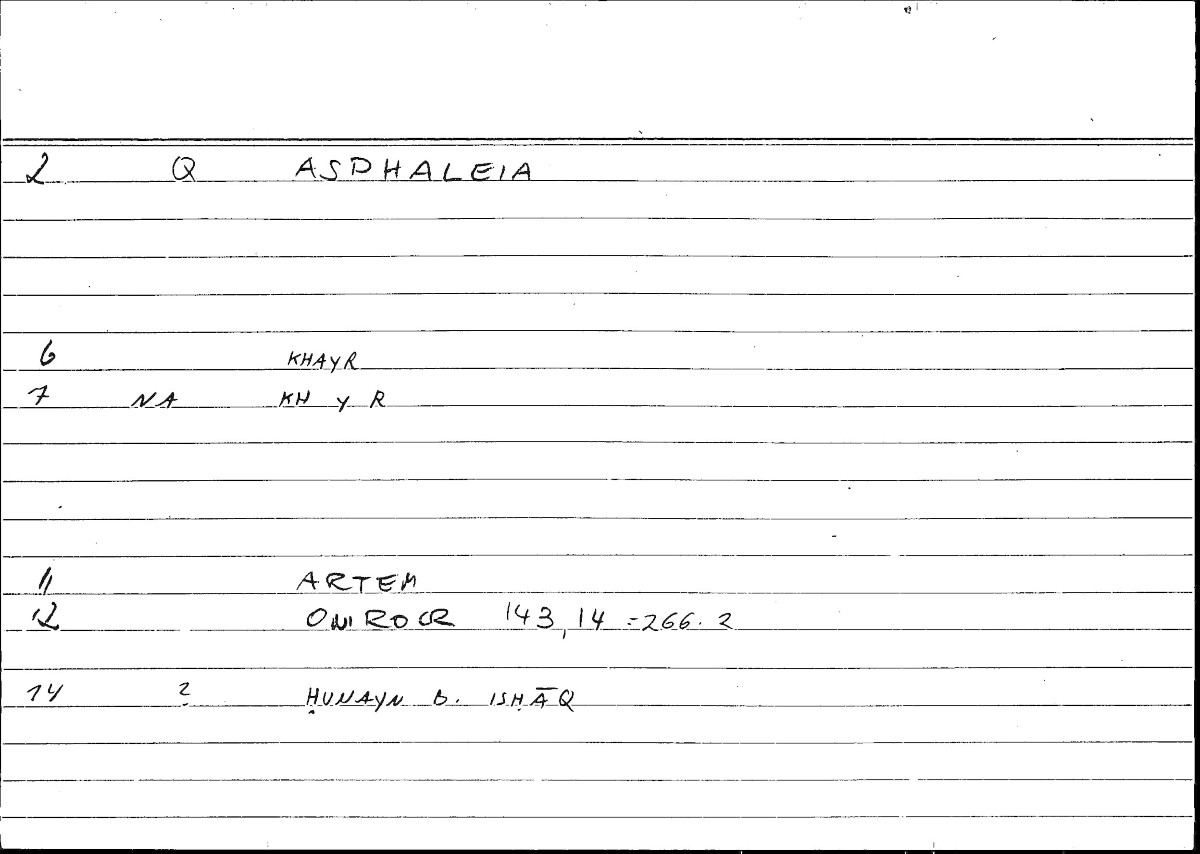 2 Q ASPHALEIA
6 KHAYR
7 NA KH Y R
11 ARTEM
12 ONIROCR 143,14 = 266.2
14 ? ḤUNAYN B. ISḤĀQ